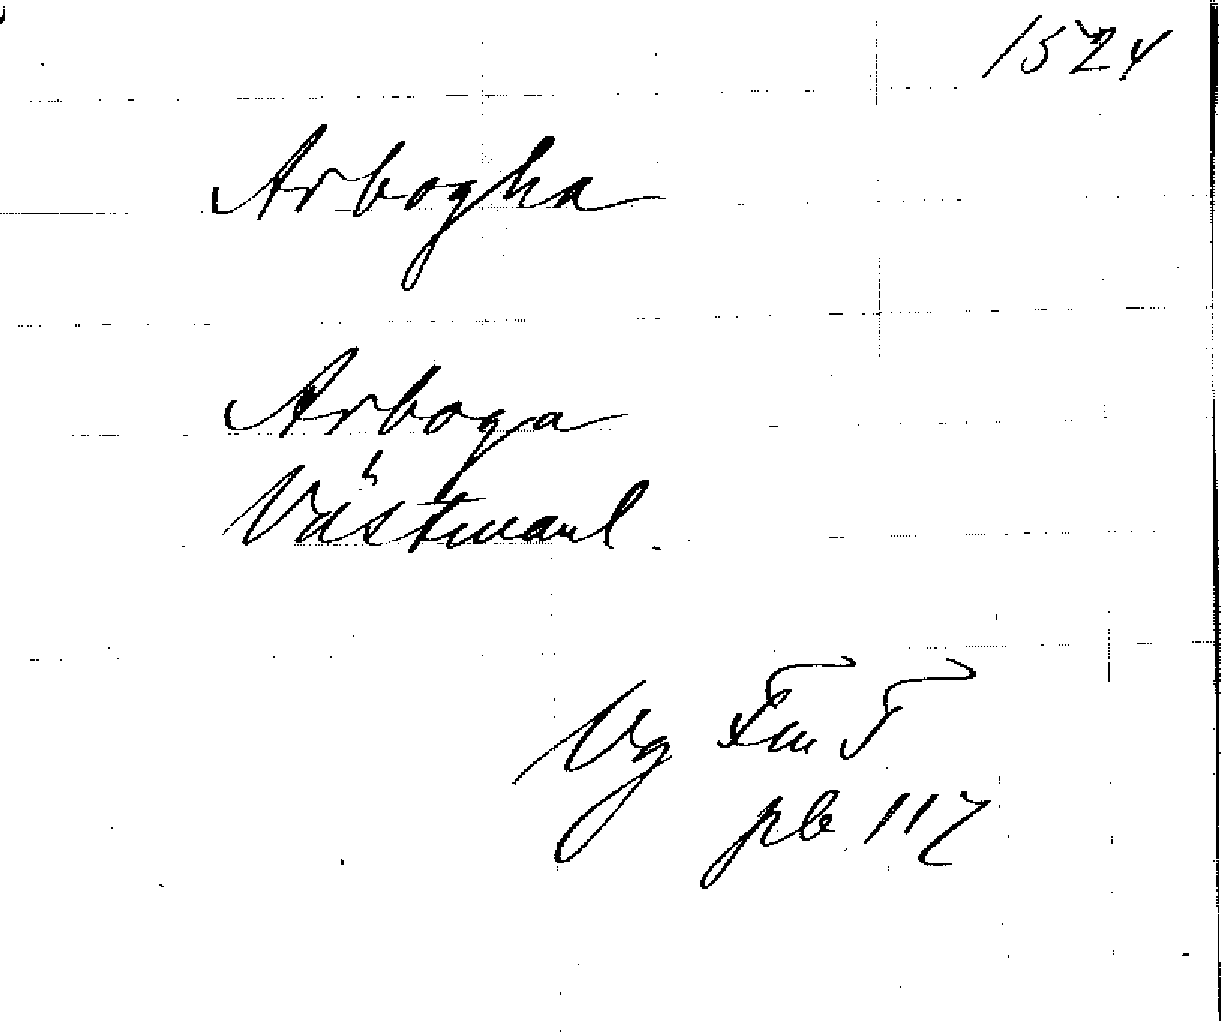 1524
Arbogha
Arboga
Västmanl.
Vg Fm T
pb 117